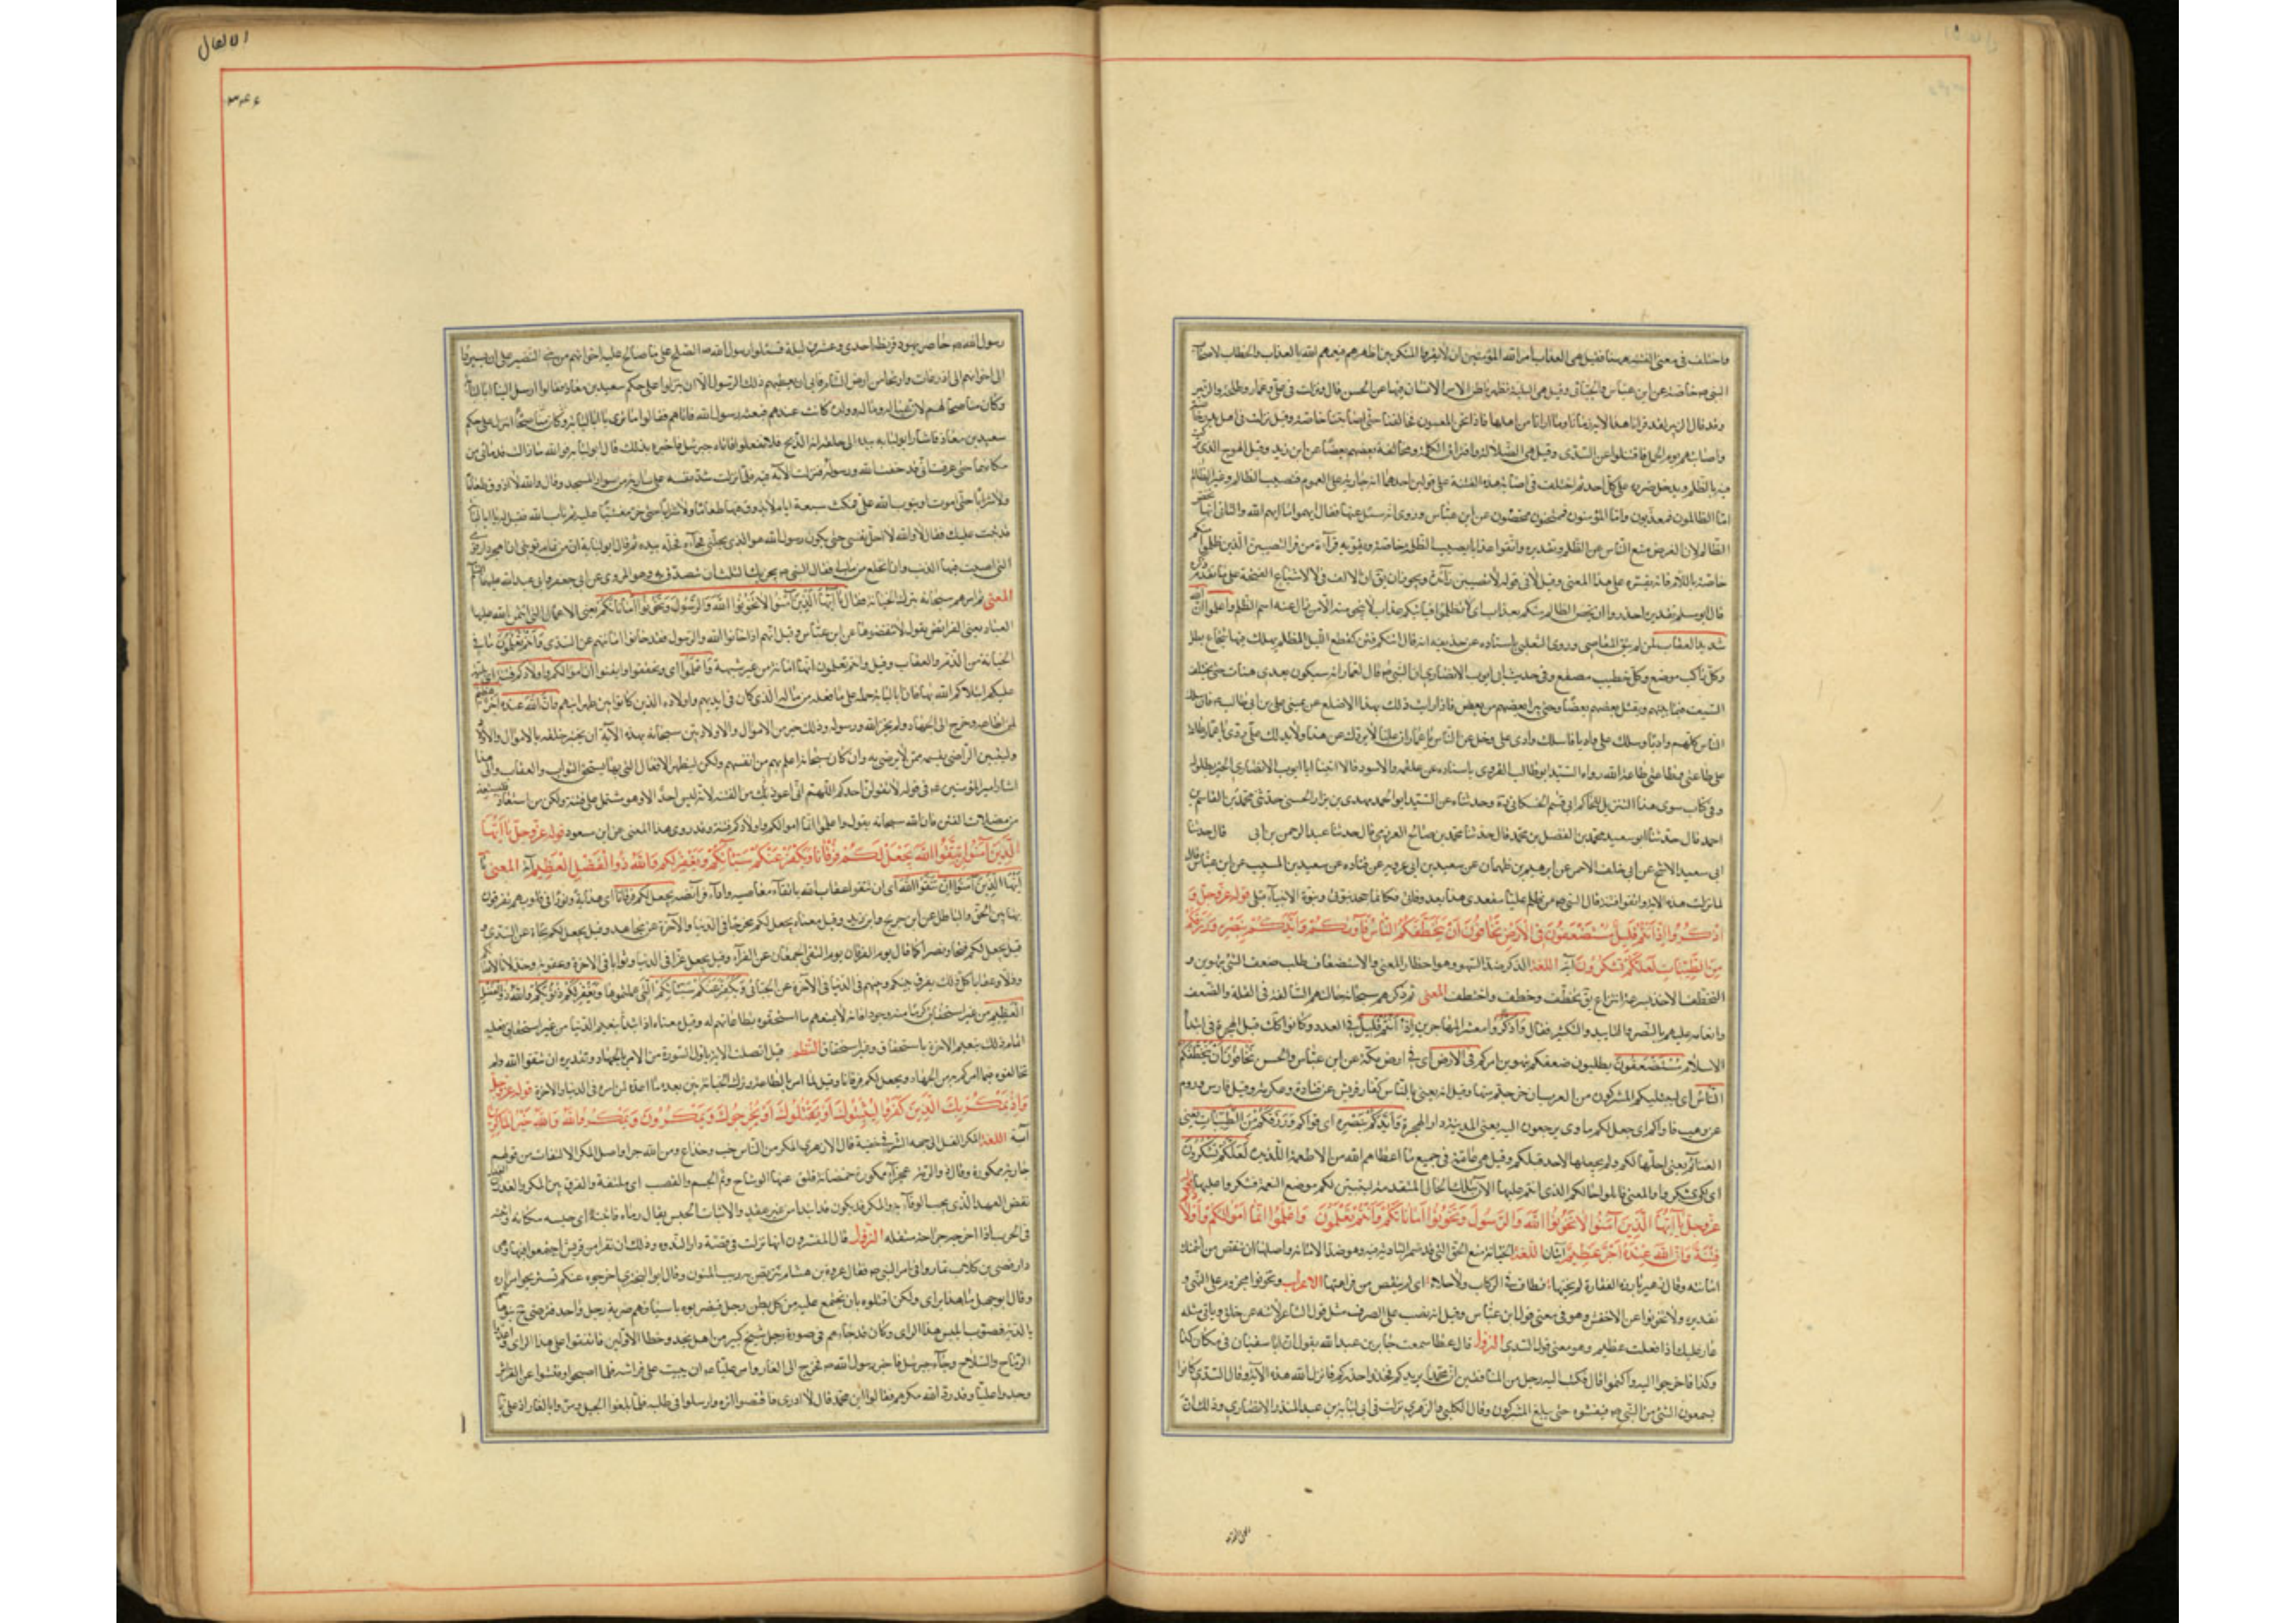 واختلف فى معنى الفتنة هيهنا فقيل هى العذاب امر الله المؤمنين ان لا يقروا المنكر بين اظهرهم فيعمهم الله بالعذاب والخطاب لاصحاب
النبى ص خاصة عن ابن عباس والجبائى وقيل هى البلية التى يظهر باطن امر الانسان فيها عن الحسن قال ونزلت فى على وعمار وطلحة والزبير
وقد قال الزبير لقد قرانا هذه الاية زمانا وما ارانا من اهلها فاذا نحن المعنيون بها فخالفنا حتى اصابتنا خاصة وقيل نزلت فى اهل بدر خاصة
واصابتهم يوم الجمل فاقتتلوا عن السدى وقيل هى الضلالة وافتراق الكلمة ومخالفة بعضهم بعضا عن ابن زيد وقيل الهرج الذى يركب
فيه بالظلم ويدخل ضرره على كل احد ثم اختلف فى اصابة هذه الفتنة على قولين احدهما انه جارية على العموم فتصيب الظالم وغير الظالم
اما الظالمون فمعذبون واما المؤمنون فممتحنون ممحصون عن ابن عباس وروى انه سئل عنها فقال ابهموا ما ابهم الله والثانى انها تختص
الظالم لان الغرض منع الناس عن الظلم وتقديره واتقوا عذابا يصيب الظلمة خاصة ويقويه قراءة من قرا لتصيبن الذين ظلموا منكم
خاصة باللام فانه تفسيره على هذا المعنى وقيل لا فى قوله لا تصيبن زائدة ويجوز ان يق ان الالف فى لا لاشباع الفتحة على ما تقدم ذكره
قال ابو مسلم تقديره احذروا ان يخص الظالم منكم بعذاب اى لا تظلموا فياتيكم عذاب لا ينجو منه الا من زال عنه اسم الظلم واعلموا ان الله
شديد العقاب لمن لم يتق المعاصى وروى الثعلبى باسناده عن حذيفة انه قال اتتكم فتن كقطع الليل المظلم يهلك فيها كل شجاع بطل
وكل راكب موضع وكل خطيب مصقع وفى حديث ابى ايوب الانصارى ان النبى ص قال لعمار انه سيكون بعدى هنات حتى يختلف
السيف فيما بينهم ويقتل بعضهم بعضا وحتى يبرا بعضهم من بعض فاذا رايت ذلك فعليك بهذا الاصلع عن يمينى على بن ابى طالب ع فان سلك
الناس كلهم واديا وسلك على واديا فاسلك وادى على وخل عن الناس يا عمار ان عليا لا يردك عن هدى ولا يدلك على ردى يا عمار طاعة
على طاعتى وطاعتى طاعة الله رواه السيد ابو طالب الهروى باسناده عن علقمة والاسود قالا اتينا ابا ايوب الانصارى الخبر بطوله
وفى كتاب شواهد التنزيل للحاكم ابى القسم الحسكانى ره وحدثناه عن السيد ابو الحمد مهدى بن نزار الحسنى حدثنى محمد بن القاسم بن
احمد قال حدثنا ابو سعيد محمد بن الفضل بن محمد قال حدثنا محمد بن صالح العرزمى قال حدثنا عبد الرحمن بن ابى قال حدثنا
ابى سعيد الاشج عن ابى خلف الاحمر عن ابرهيم بن طهمان عن سعيد بن ابى عروبه عن قتاده عن سعيد بن المسيب عن ابن عباس قال
لما نزلت هذه الاية واتقوا فتنة قال النبى ص من ظلم عليا مقعدى هذا بعد وفاتى فكانما جحد نبوتى ونبوة الانبياء قبلى قوله عز وجل و
اذكروا اذ انتم قليل مستضعفون فى الارض تخافون ان يتخطفكم الناس فآويكم وايدكم بنصره ورزقكم
من الطيبات لعلكم تشكرون آية اللغة الذكر ضد السهو وهو احضار المعنى والاستضعاف طلب ضعف الشئ بتهوين و
التخطف الاخذ بسرعة انتزاع يق تخطف وخطف واختطف المعنى ثم ذكرهم سبحانه حالتهم السالفة فى القلة والضعف
وانعامه عليهم بالنصر والتاييد والتكثير فقال واذكروا معشر المهاجرين اذ انتم قليل فى العدد وكانوا كك قبل الهجرة فى ابتدا
الاسلام مستضعفون يطلبون ضعفكم بتهوين امركم فى الارض اى فى ارض مكة عن ابن عباس والحسن تخافون ان يتخطفكم
الناس اى يستلبكم المشركون من العرب ان خرجتم منها وقيل انه يعنى بالناس كفار قريش عن قتادة وعكرمة وقيل فارس وروم
عن وهب فآواكم اى جعل لكم ماوى يرجعون اليه يعنى المدينة دار الهجرة وايدكم بنصره اى قواكم ورزقكم من الطيبات يعنى
الغنائم يعنى احلها لكم ولم يحلها لاحد قبلكم وقيل هى عامة فى جميع ما اعطاهم الله من الاطعمة اللذيذة لعلكم تشكرون
اى لكى تشكروا والمعنى قابلوا حالكم الذى انتم عليها الآن بتلك الحال المتقدمة ليتبين لكم موضع النعمة فتشكروا عليها قوله
عز وجل يا ايها الذين آمنوا لا تخونوا الله والرسول وتخونوا اماناتكم وانتم تعلمون واعلموا انما اموالكم واولادكم
فتنة وان الله عنده اجر عظيم آيتان اللغة الخيانة منع الحق الذى قد ضمن التادية فيه وهو ضد الامانة واصلها ان تنقص من ائتمنك
امانته وقال زهير بارزة الفقارة لم يخنها قطاف فى الركاب ولا خلاء اى لم ينقص من فراهتها الاعراب وتخونوا مجزوم على النهى و
تقديره ولا تخونوا عن الاخفش وهو فى معنى قول ابن عباس وقيل انه نصب على الصرف مثل قول الشاعر لا تنه عن خلق وتاتى مثله
عار عليك اذا فعلت عظيم وهو معنى قول السدى النزول قال عطا سمعت جابر بن عبد الله يقول ان ابا سفيان فى مكان كذا
وكذا فاخرجوا اليه واكتموا قال فكتب اليه رجل من المنافقين ان محمدا يريدكم فخذوا حذركم فانزل الله هذه الآية وقال السدى كانوا
يسمعون الشئ من النبى ص فيفشوه حتى يبلغ المشركون وقال الكلبى والزهرى نزلت فى ابى لبابة بن عبد المنذر الانصارى وذلك ان
الانفال
رسول الله ص حاصر يهود قريظة احدى وعشرين ليلة فسئلوا رسول الله ص الصلح على ما صالح عليه اخوانهم من بنى النضير على ان يسيروا
الى اخوانهم الى اذرعات واريحا من ارض الشام فابى ان يعطيهم ذلك الرسول الا ان ينزلوا على حكم سعد بن معاذ فقالوا ارسل الينا ابا لبابة
وكان مناصحا لهم لان عياله وماله وولده كانت عندهم فبعثه رسول الله فاتاهم فقالوا ما ترى يا ابا لبابة انزل على حكم
سعد بن معاذ فاشار ابو لبابة بيده الى حلقه انه الذبح فلا تفعلوا فاتاه جبرئيل فاخبره بذلك قال ابو لبابة فو الله ما زالت قدماى من
مكانهما حتى عرفت انى قد خنت الله ورسوله فنزلت الآية فيه فلما نزلت شد نفسه على سارية من سوارى المسجد وقال والله لا اذوق طعاما
ولا شرابا حتى اموت او يتوب الله على فمكث سبعة ايام لا يذوق فيها طعاما ولا شرابا حتى خر مغشيا عليه ثم تاب الله عليه فقيل له يا ابا لبابة
قد تيب عليك فقال لا والله لا احل نفسى حتى يكون رسول الله هو الذى يحلنى فجاءه فحله بيده ثم قال ابو لبابة ان من تمام توبتى ان اهجر دار قومى
التى اصبت فيها الذنب وان انخلع من مالى فقال النبى ص يجزيك الثلث ان تصدق به وهو المروى عن ابى جعفر وابى عبد الله عليهما السلم
المعنى ثم امرهم سبحانه بترك الخيانة فقال يا ايها الذين آمنوا لا تخونوا الله والرسول وتخونوا اماناتكم يعنى الاعمال التى ائتمن الله عليها
العباد يعنى الفرائض يقول لا تنقضوها عن ابن عباس وقيل انهم اذا خانوا الله والرسول فقد خانوا اماناتهم عن السدى وانتم تعلمون ما فى
الخيانة من الذم والعقاب وقيل وانتم تعلمون انها امانة من غير شبهة واعلموا اى وتحققوا وايقنوا انما اموالكم واولادكم فتنة اى بلية
عليكم ابتلاكم الله بها فان ابا لبابة حمله على ما فعله من ماله الذى كان فى ايديهم واولاده الذين كانوا بين ظهرانيهم وان الله عنده اجر عظيم
لمن اطاعه وخرج الى الجهاد ولم يخن الله ورسوله وذلك خير من الاموال والاولاد بين سبحانه بهذه الآية ان يختبر خلقه بالاموال والاولاد
وليتبين الراضى بقسمه ممن لا يرضى به وان كان سبحانه اعلم بهم من انفسهم ولكن ليظهر الافعال التى بها يستحق الثواب والعقاب والى هذا
اشار امير المؤمنين ع فى قوله لا يقولن احدكم اللهم انى اعوذ بك من الفتنة لانه ليس احد الا وهو مشتمل على فتنة ولكن من استعاذ فليستعذ
من مضلات الفتن فان الله سبحانه يقول واعلموا انما اموالكم واولادكم فتنة وقد روى هذا المعنى عن ابن مسعود قوله عز وجل يا ايها
الذين آمنوا ان تتقوا الله يجعل لكم فرقانا ويكفر عنكم سيئاتكم ويغفر لكم والله ذو الفضل العظيم آية المعنى يا
ايها الذين آمنوا ان تتقوا الله اى ان تتقوا عقاب الله باتقاء معاصيه واداء فرائضه يجعل لكم فرقانا اى هداية ونورا فى قلوبكم تفرقون
بها بين الحق والباطل عن ابن جريح وابن زيد وقيل معناه يجعل لكم مخرجا فى الدنيا والآخرة عن مجاهد وقيل يجعل لكم نجاة عن السدى و
قيل يجعل لكم فتحا ونصرا كما قال يوم الفرقان يوم التقى الجمعان عن الفراء وقيل يجعل عزا فى الدنيا وثوابا فى الآخرة وعقوبة وخذلانا لاعدائكم
وذلا وعقابا كل ذلك يفرق بينكم وبينهم فى الدنيا والآخرة عن الجبائى ويكفر عنكم سيئاتكم التى عملتموها ويغفر لكم ذنوبكم والله ذو الفضل
العظيم
اتمام ذلك بنعيم الآخرة باستحقاق وغير استحقاق النظم قيل اتصلت الاية باول السورة من الامر بالجهاد وتقديره ان تتقوا الله ولم
تخالفوه فيما امركم به من الجهاد يجعل لكم فرقانا وقيل لما امر بالطاعة وترك الخيانة بين بعده ما اعده لمن امره فى الدنيا والآخرة قوله عز وجل
واذ يمكر بك الذين كفروا ليثبتوك او يقتلوك او يخرجوك ويمكرون ويمكر الله والله خير الماكرين
آية اللغة المكر الفتل الى جهة الشر فى خفية قال الازهرى المكر من الناس خب وخداع ومن الله جزاء واصل المكر الالتفات من قولهم
جارية ممكورة وقال ذو الرمة عجزاء ممكورة خمصانة قلق عنها الوشاح وتم الجسم والقصب اى ملتفة والفرق بين المكر والغدر ان الغدر
نقض العهد الذى يجب الوفاء به والمكر قد يكون ابتداء من غير عقد والاثبات الحبس يقال رماه فاثبته اى حبسه مكانه واثبته
فى الحرب اذا اجرحه جراحة مثقلة النزول قال المفسرون انها نزلت فى قصة دار الندوة وذلك ان نفرا من قريش اجتمعوا فيها وهى
دار قصى بن كلاب وتآمروا فى امر النبى ص فقال عروة بن هشام نتربص به ريب المنون وقال ابو البخترى اخرجوه عنكم تستريحوا من اذاه
وقال ابو جهل ما هذا براى ولكن اقتلوه بان يجتمع عليه من كل بطن رجل فيضربوه باسيافهم ضربة رجل واحد فيرضى ح بنو هاشم
بالدية فصوب ابليس هذا الراى وكان قد جاءهم فى صورة رجل شيخ كبير من اهل نجد وخطا الاولين فاتفقوا على هذا الراى واعدوا
الرجال والسلاح وجاء جبرئيل فاخبر رسول الله ص فخرج الى الغار وامر عليا ع ان يبيت على فراشه فلما اصبحوا وفتشوا عن الفراش
وجدوا عليا وقد رد الله مكرهم فقالوا اين محمد قال لا ادرى فاقتصوا اثره وارسلوا فى طلبه فلما بلغوا الجبل ومروا بالغار راوا على بابه